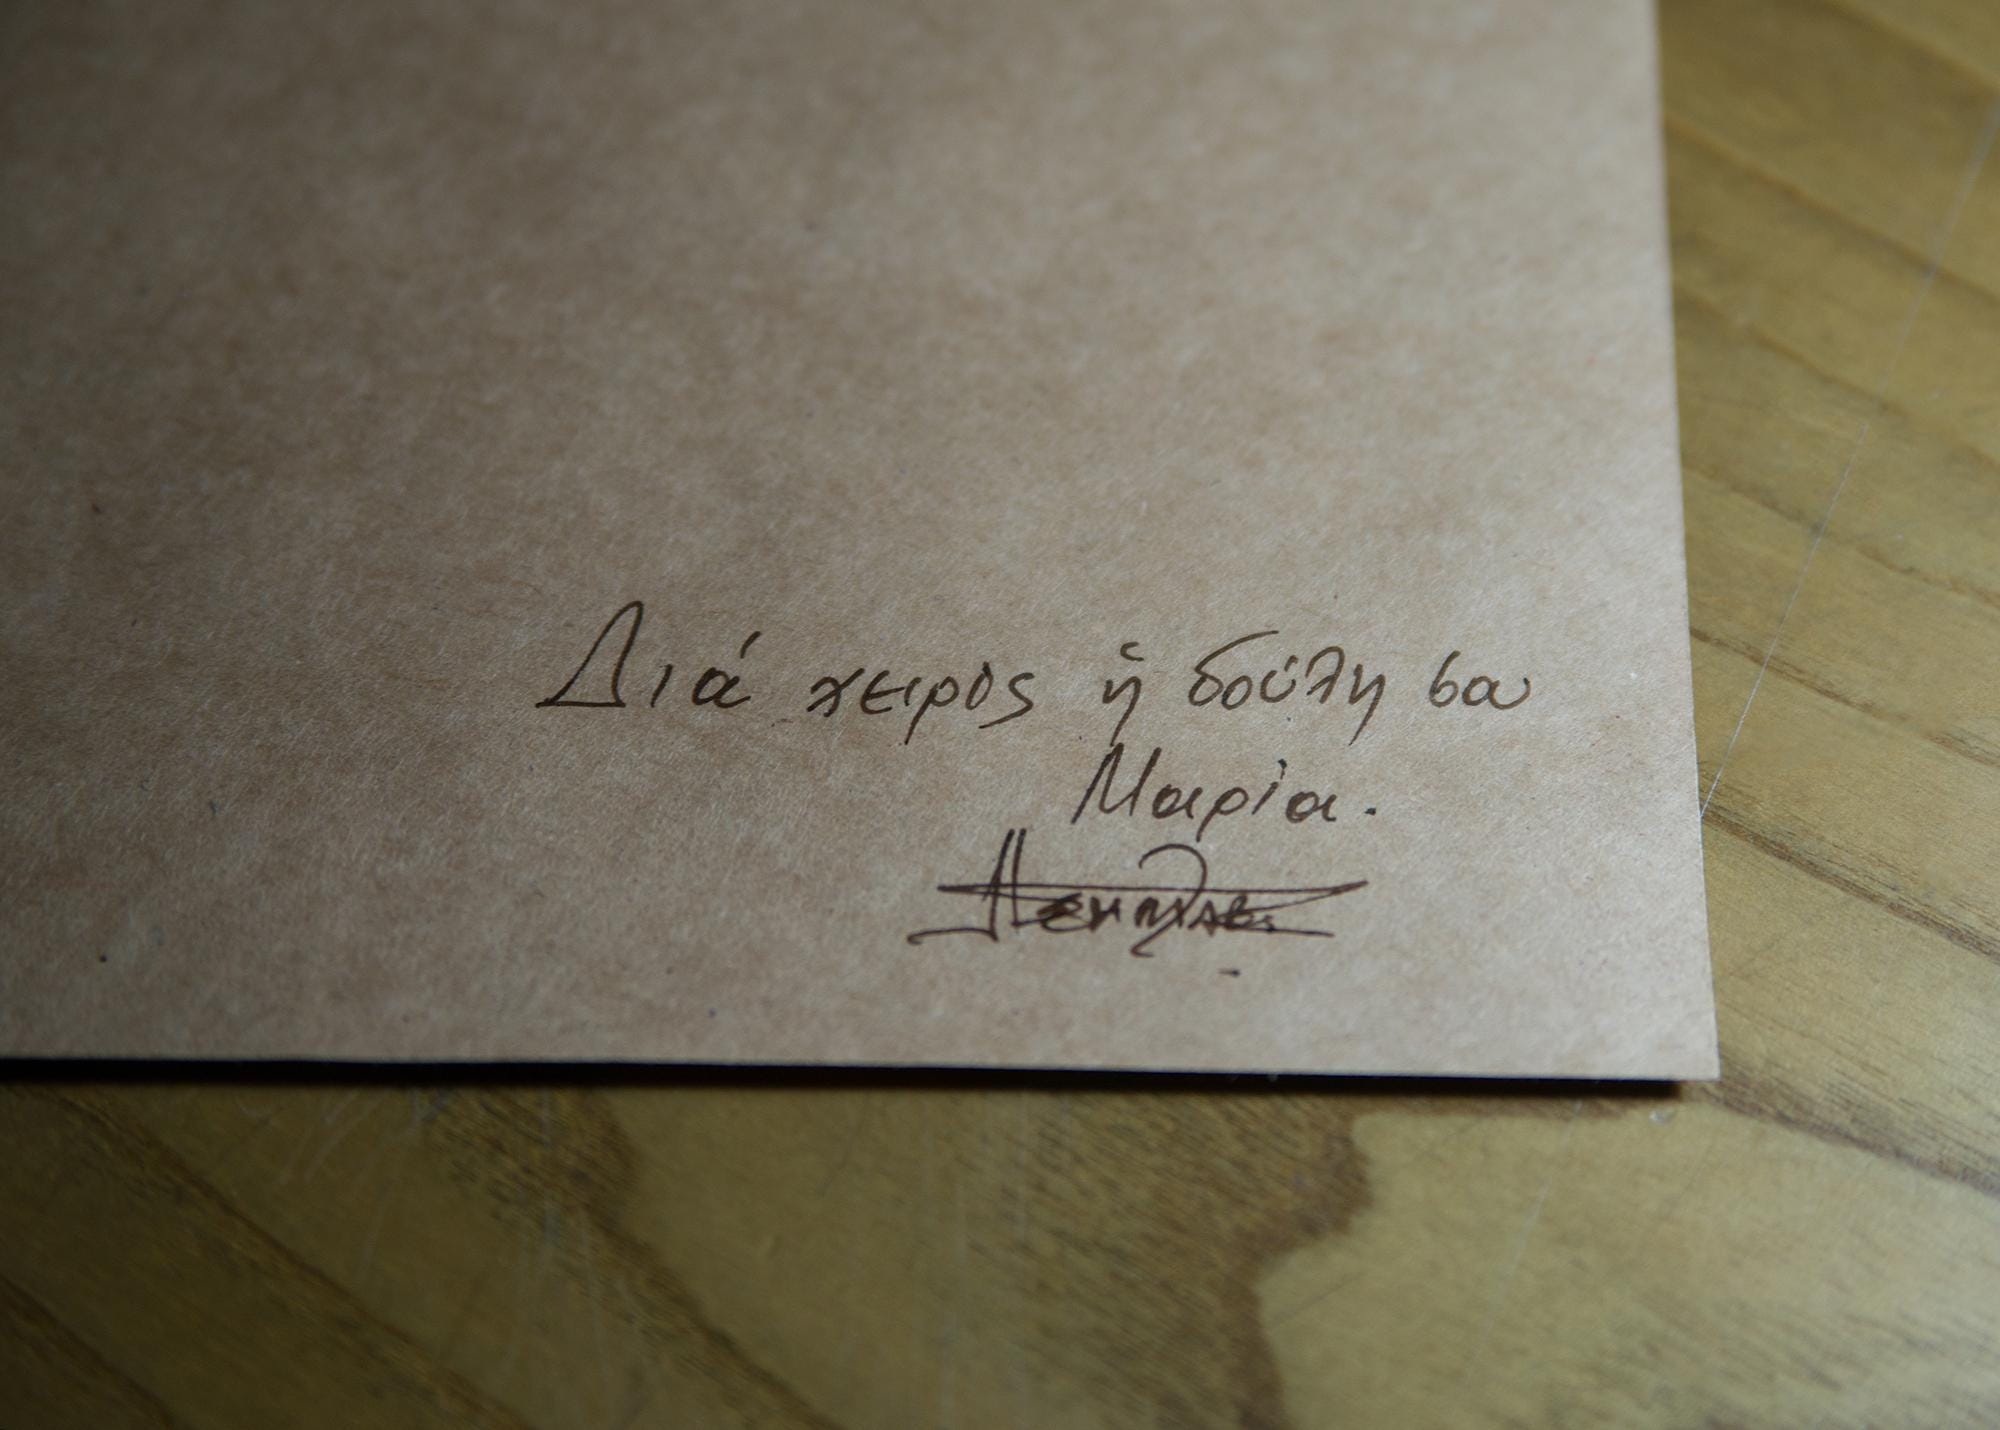 Διά χειρός ἡ δούλη σα
Μαρία.